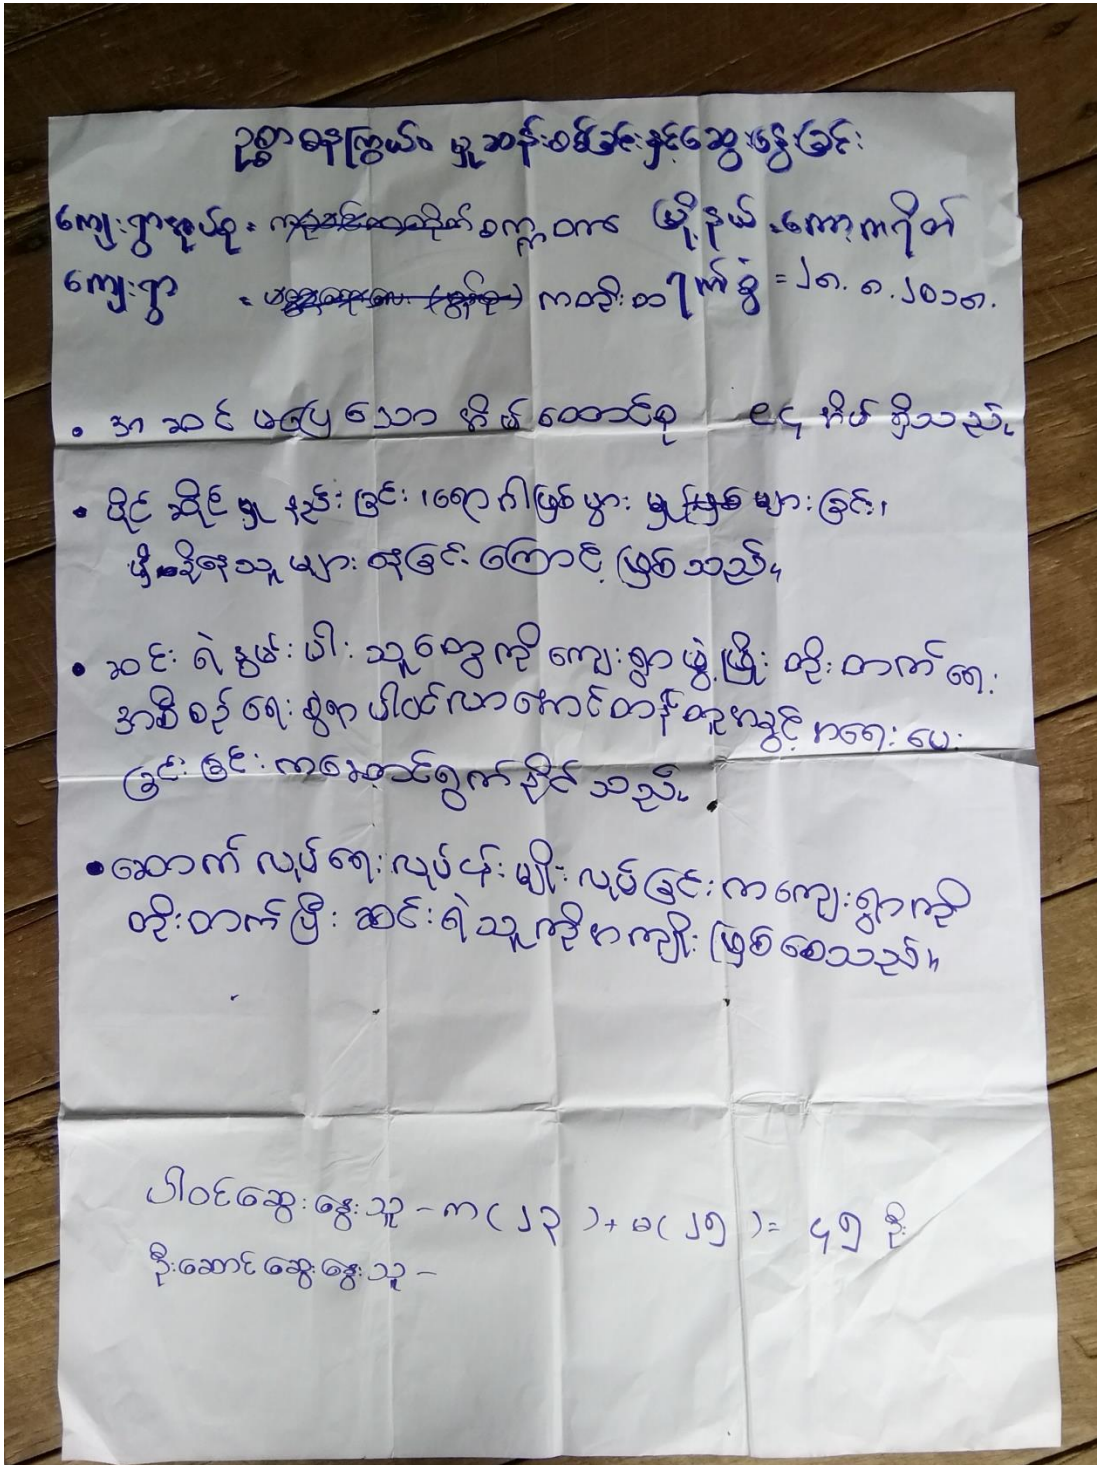 ဥစ္စာဓနကြွယ်ဝ မှုဆန်းစစ်ခြင်းနှင့်ဆွေးနွေးခြင်း
ကျေးရွာအုပ်စု = စက္ကဝက် မြို့နယ် = ကော့ကရိတ်
ကျေးရွာ = ကတိုးတ ရက်စွဲ = ၂၈.၈.၂၀၁၈.
• အဆင်မပြေသော အိမ်ထောင်စု ၉၄ အိမ် ရှိသည်။
• ပိုင်ဆိုင်မှု နည်းခြင်း၊ ရောဂါဖြစ်ပွား မှု များခြင်း၊
မှီခိုနေသူများ နေခြင်းကြောင့် ဖြစ်သည်။
• ဆင်းရဲနွမ်းပါး သူတွေကို ကျေးရွာဖွံ့ဖြိုး တိုးတက်ရေး
အစီစဉ်ရေးဆွဲရာ ပါဝင်လာအောင်တန်းတူအခွင့်အရေးပေး
ခြင်းခြင်းကဆောင်ရွက်နိုင်သည်။
• ဆောက်လုပ်ရေးလုပ်ငန်းမျိုးလုပ်ခြင်းကကျေးရွာကို
တိုးတက်ပြီး ဆင်းရဲသူကိုအကျိုး ဖြစ်စေသည်။
ပါဝင်ဆွေးနွေးသူ - က ( ၂၃ ) + မ ( ၂၅ ) = ၄၅ ဦး
ဦးဆောင်ဆွေးနွေးသူ -